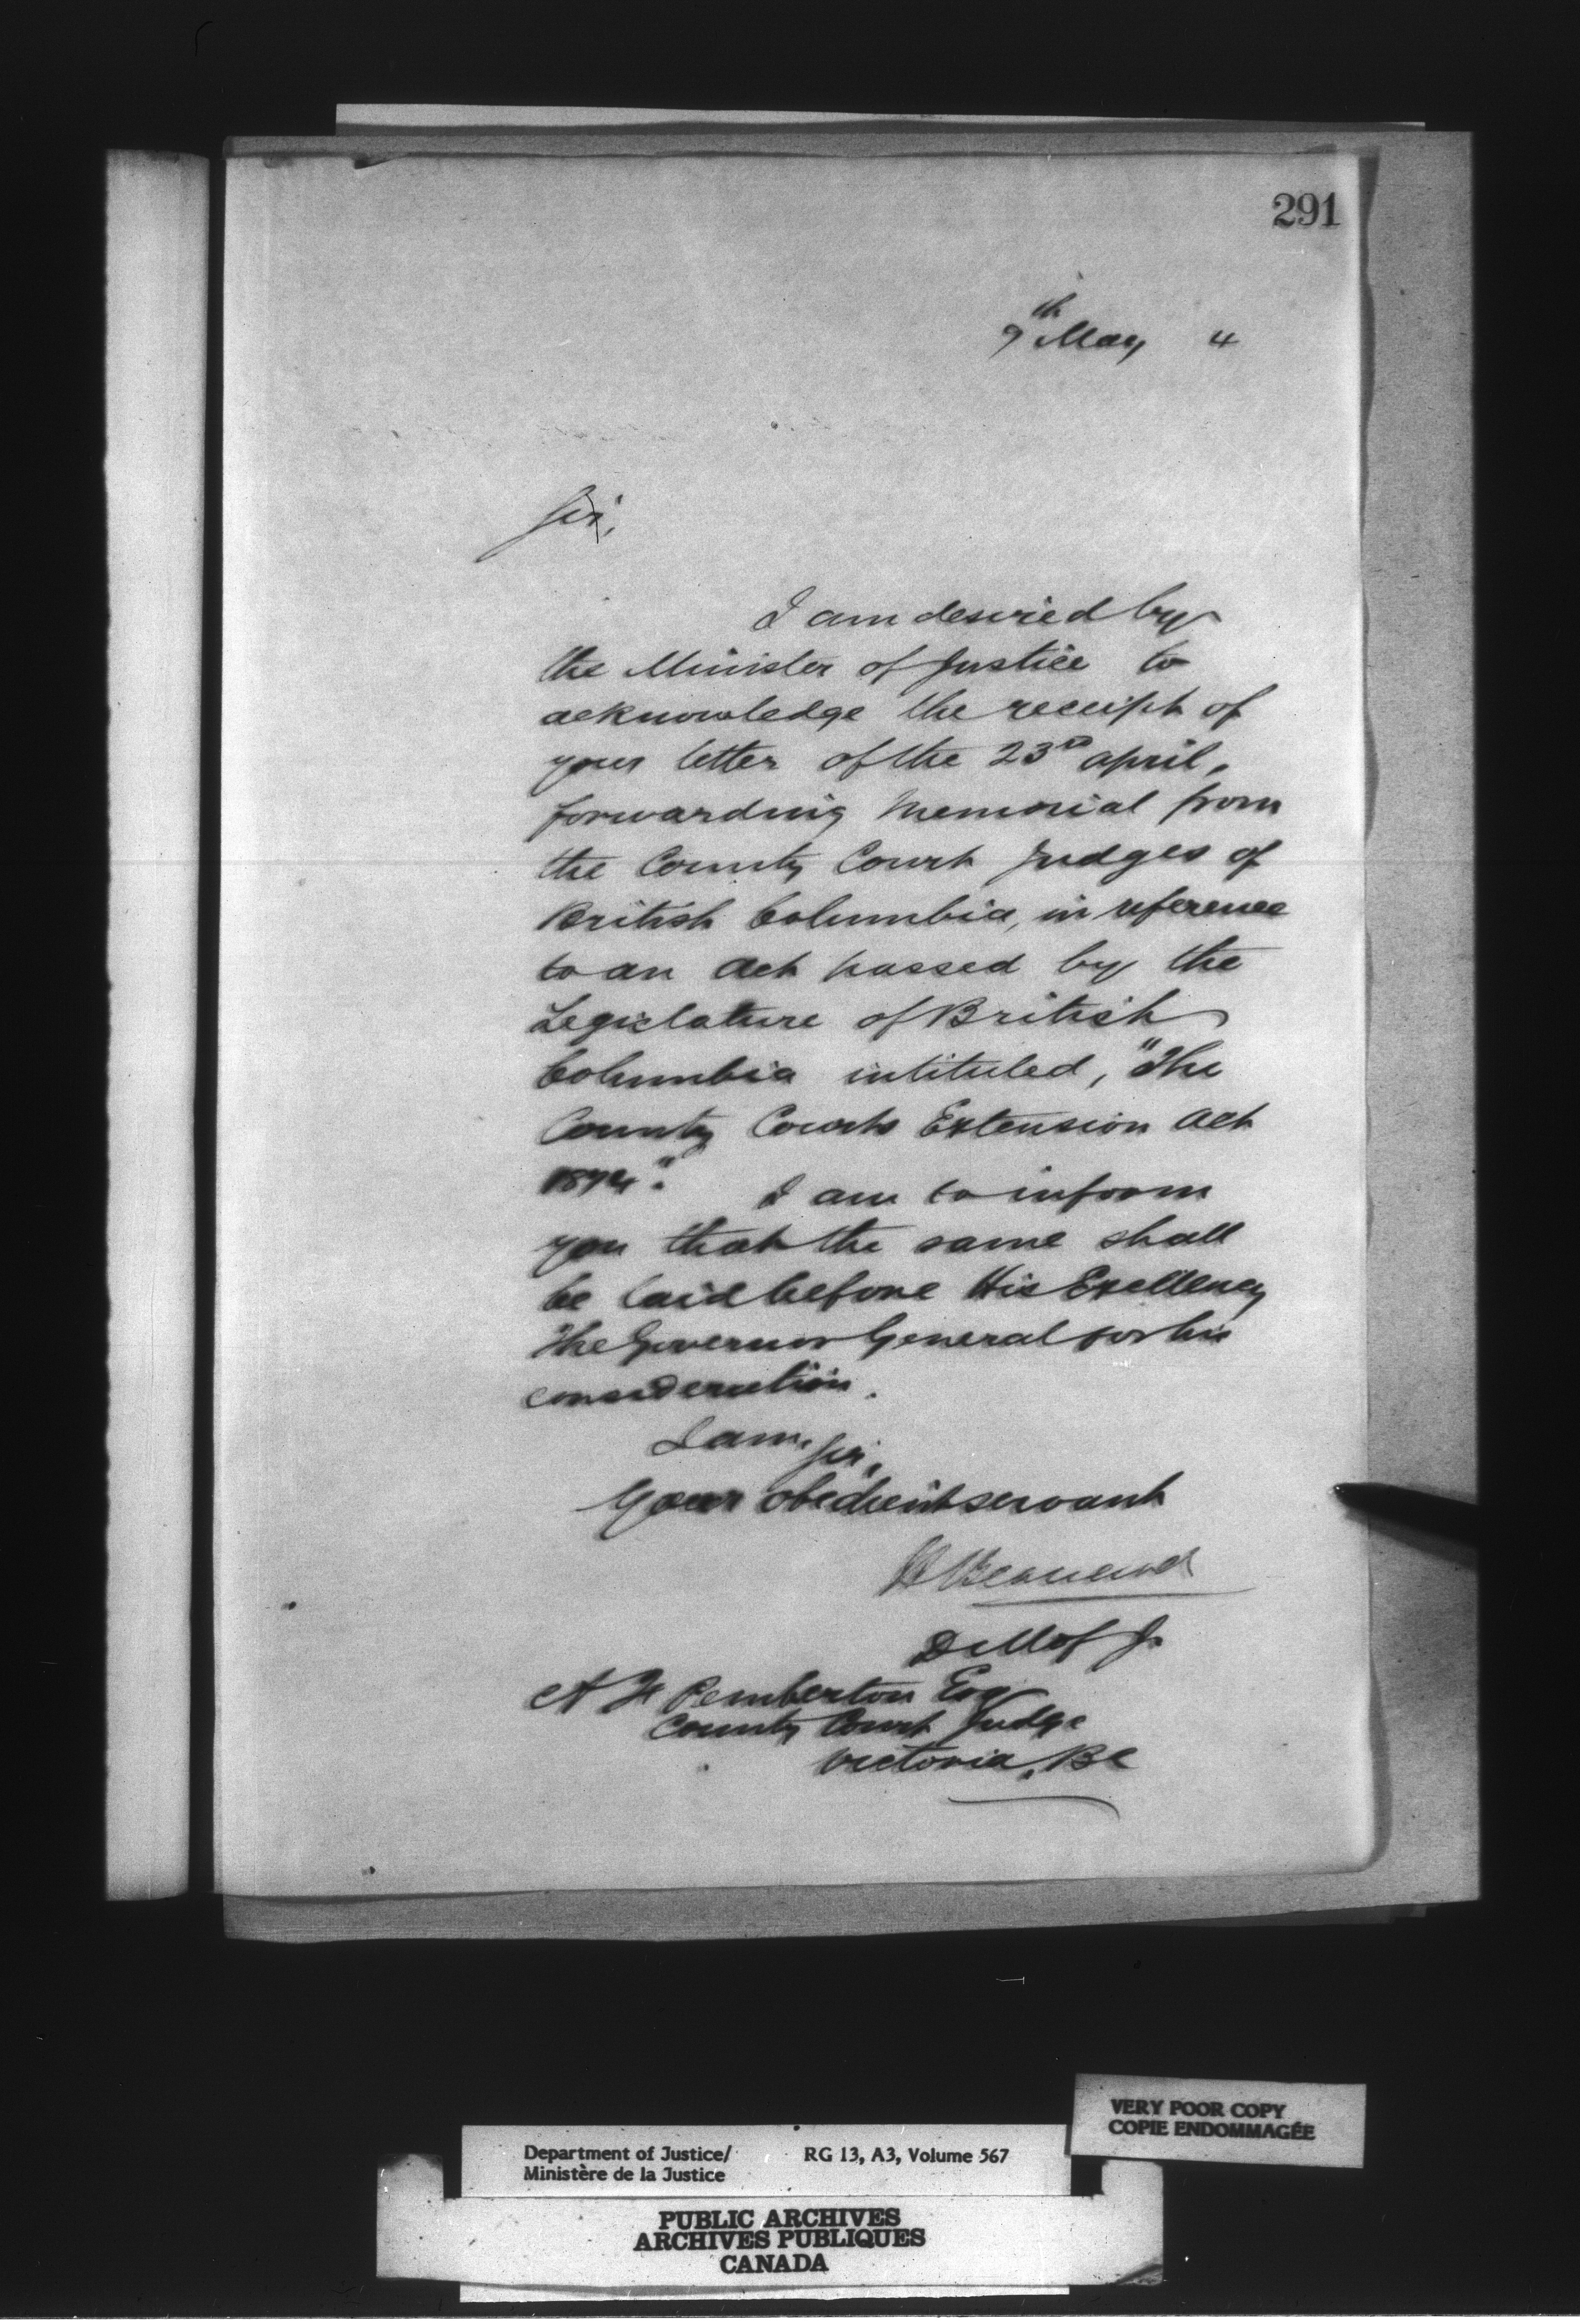 291
9th May 4
Sir,
I am desired by
the Minister of Justice to
acknowledge the receipt of
your letter of the 23rd April,
forwarding Memorial from
the County Court Judges of
British Columbia, in reference
to an Act passed by the
Legislature of British
Columbia intituled, "The
County Courts Extension Act
1874". I am to inform
you that the same shall
be laid before His Excellency
The Governor General for his
consideration.
I am, Sir,
Your obedient servant
H Bernard
D M of J
A F Pemberton Esq
County Court Judge
Victoria, BC
VERY POOR COPY
COPIE ENDOMMAGÉE
Department of Justice/ RG 13, A3, Volume 567
Ministère de la Justice
PUBLIC ARCHIVES
ARCHIVES PUBLIQUES
CANADA